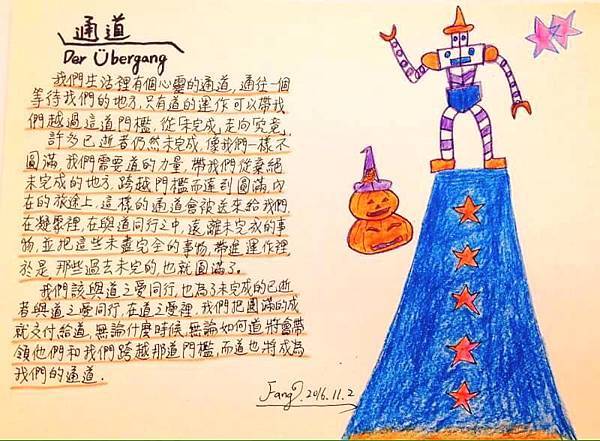 通道
Der Übergang
我們生活裡有個心靈的通道，通往一個
等待我們的地方，只有道的運作可以帶我
們越過這道門檻，從未完成，走向究竟，
許多已逝者仍然未完成，像我們一樣不
圓滿，我們需要道的力量，帶我們從棄絕
未完成的地方，跨越門檻而達到圓滿內
在的旅途上，這樣的通道會被送來給我們
在凝聚裡，在與道同行之中，遠離未完成的事
物，並把這些未盡完全的事物，帶進運作裡
於是，那些過去未完的，也就圓滿了。
我們該與道之愛同行，也為了未完成的已逝
者與道之愛同行，在道之愛裡，我們把圓滿的成
就交付給道，無論什麼時候，無論如何道將會帶
領他們和我們跨越那道門檻，而道也將成為
我們的通道。
Fang 2016.11.2